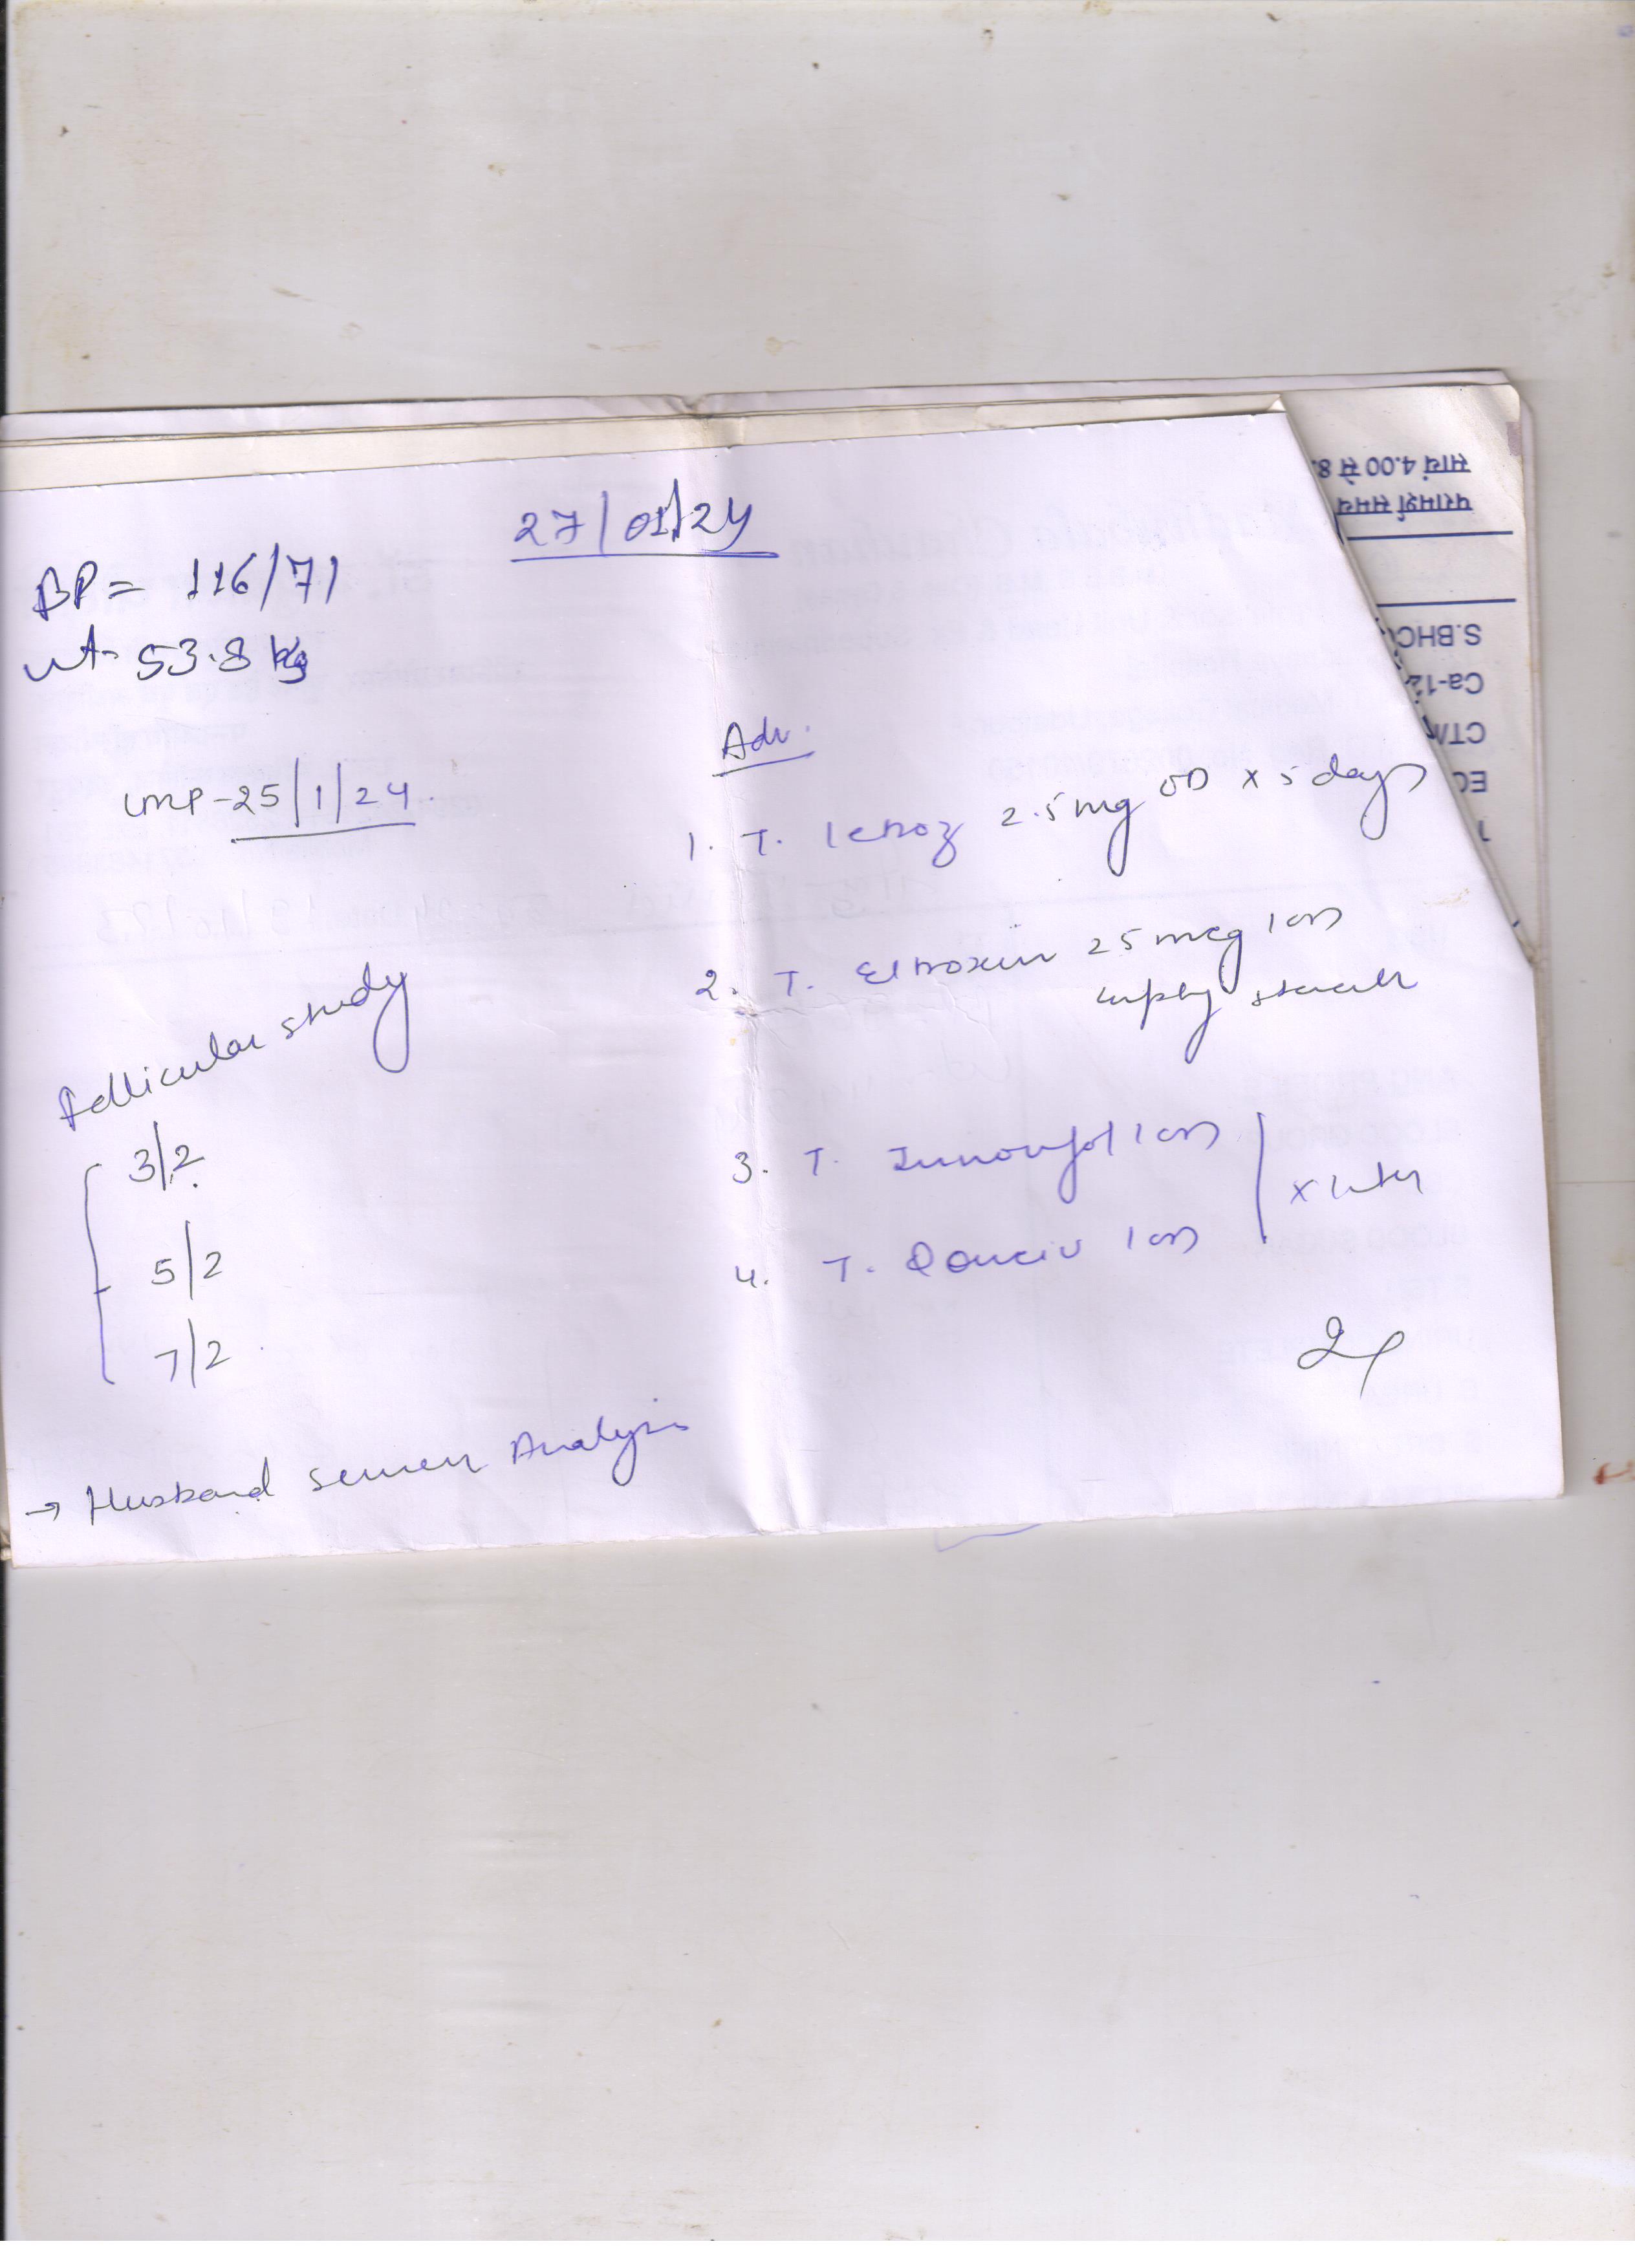 27/01/24
BP = 116/71
wt- 53.8 kg
LMP-25/1/24
Adv.
1. T. letroz 2.5mg OD x 5 days
2. T. Eltroxin 25 mcg 1 OD
empty stomach
3. T. 1 OD
4. T. 1 OD
x
Follicular study
3/2
5/2
7/2
→ Husband semen Analysis
परामर्श समय
सायं 4.00 से 8
S.BHC
Ca-12
CTM